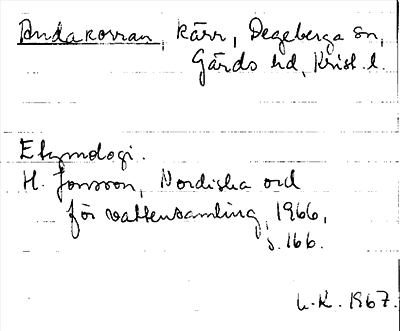 Andakorran, kärr, Degeberga sn,
Gärds hd, Krist. l.
Etymologi.
H. Jonsson, Nordiska ord
för vattensamling, 1966,
s. 166.
L.K. 1967.